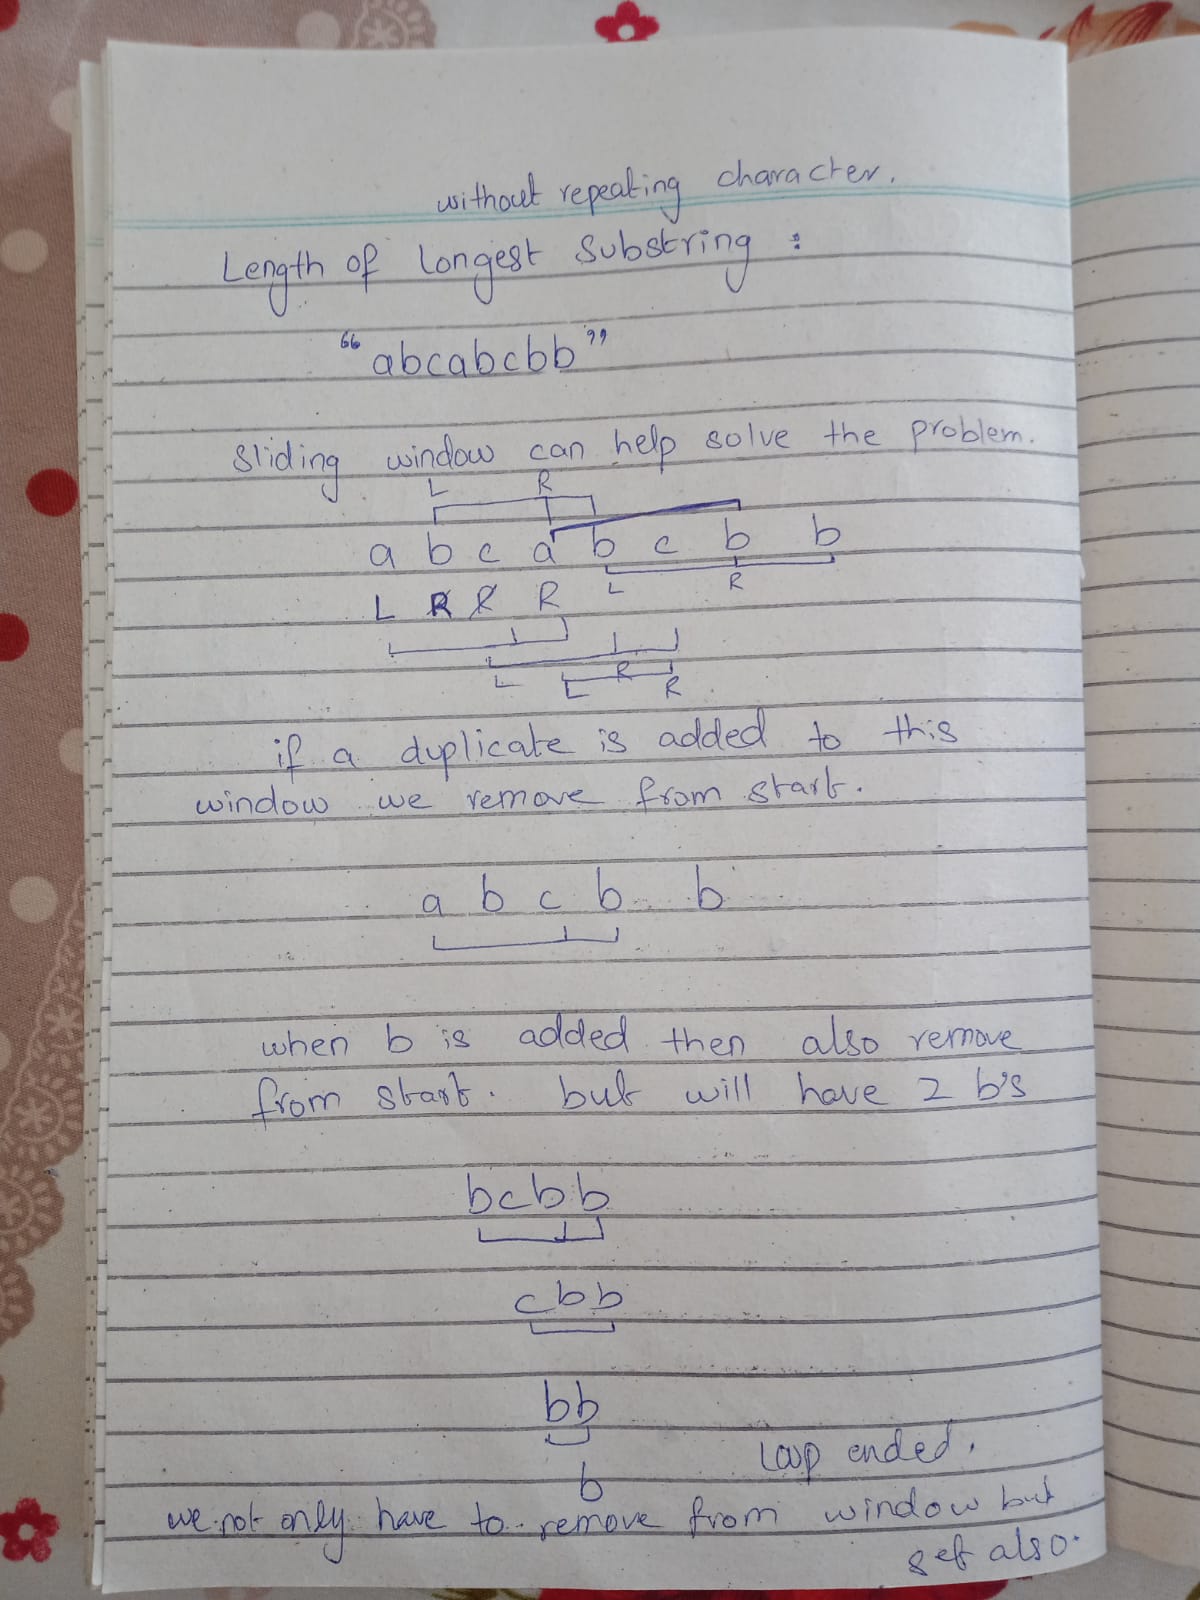 without repeating character.
Length of Longest Substring :
"abcabcbb"
Sliding window can help solve the problem.
L R
a b c a b c b b
L R R R L R
R
L L R
if a duplicate is added to this
window we remove from start.
a b c b b
when b is added then also remove
from start. but will have 2 b's
bcbb
cbb
bb
Loop ended.
b
we not only have to remove from window but
set also.